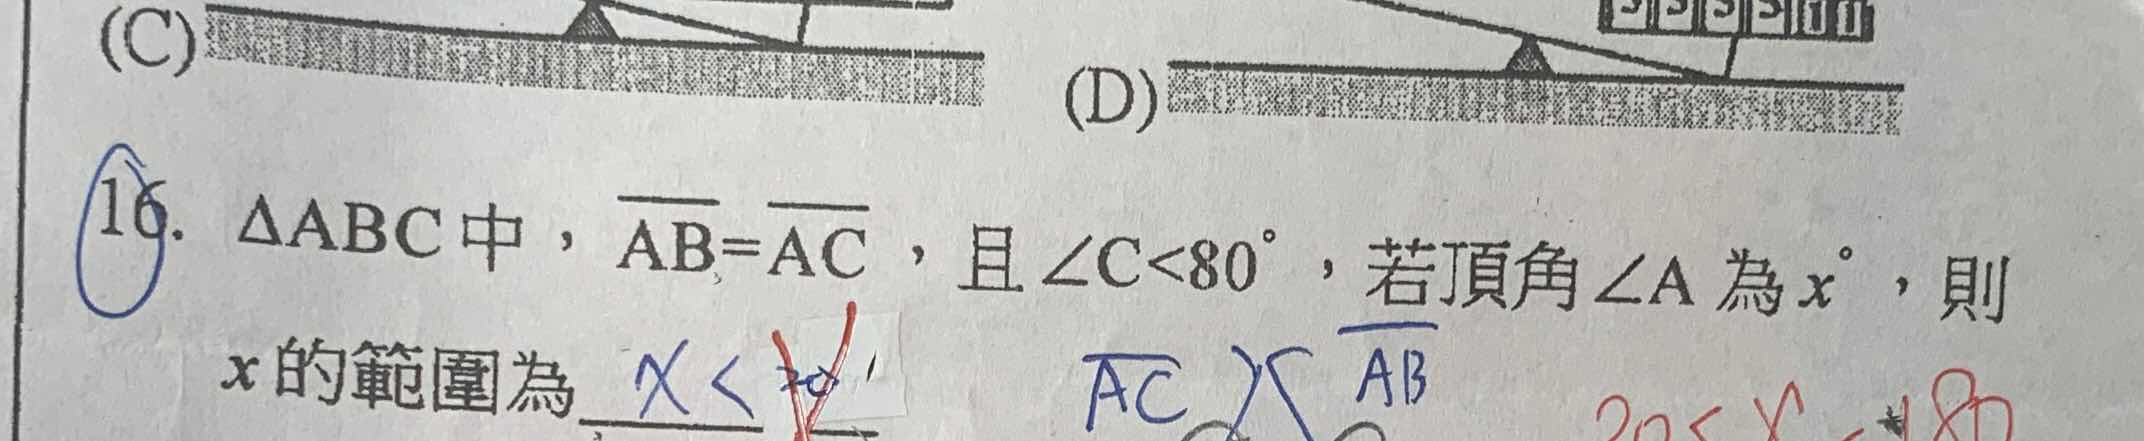 (C)
(D)
16. ΔABC中，AB=AC，且∠C<80°，若頂角∠A 為x°，則
x的範圍為 x < 20
AC AB
20<x<180